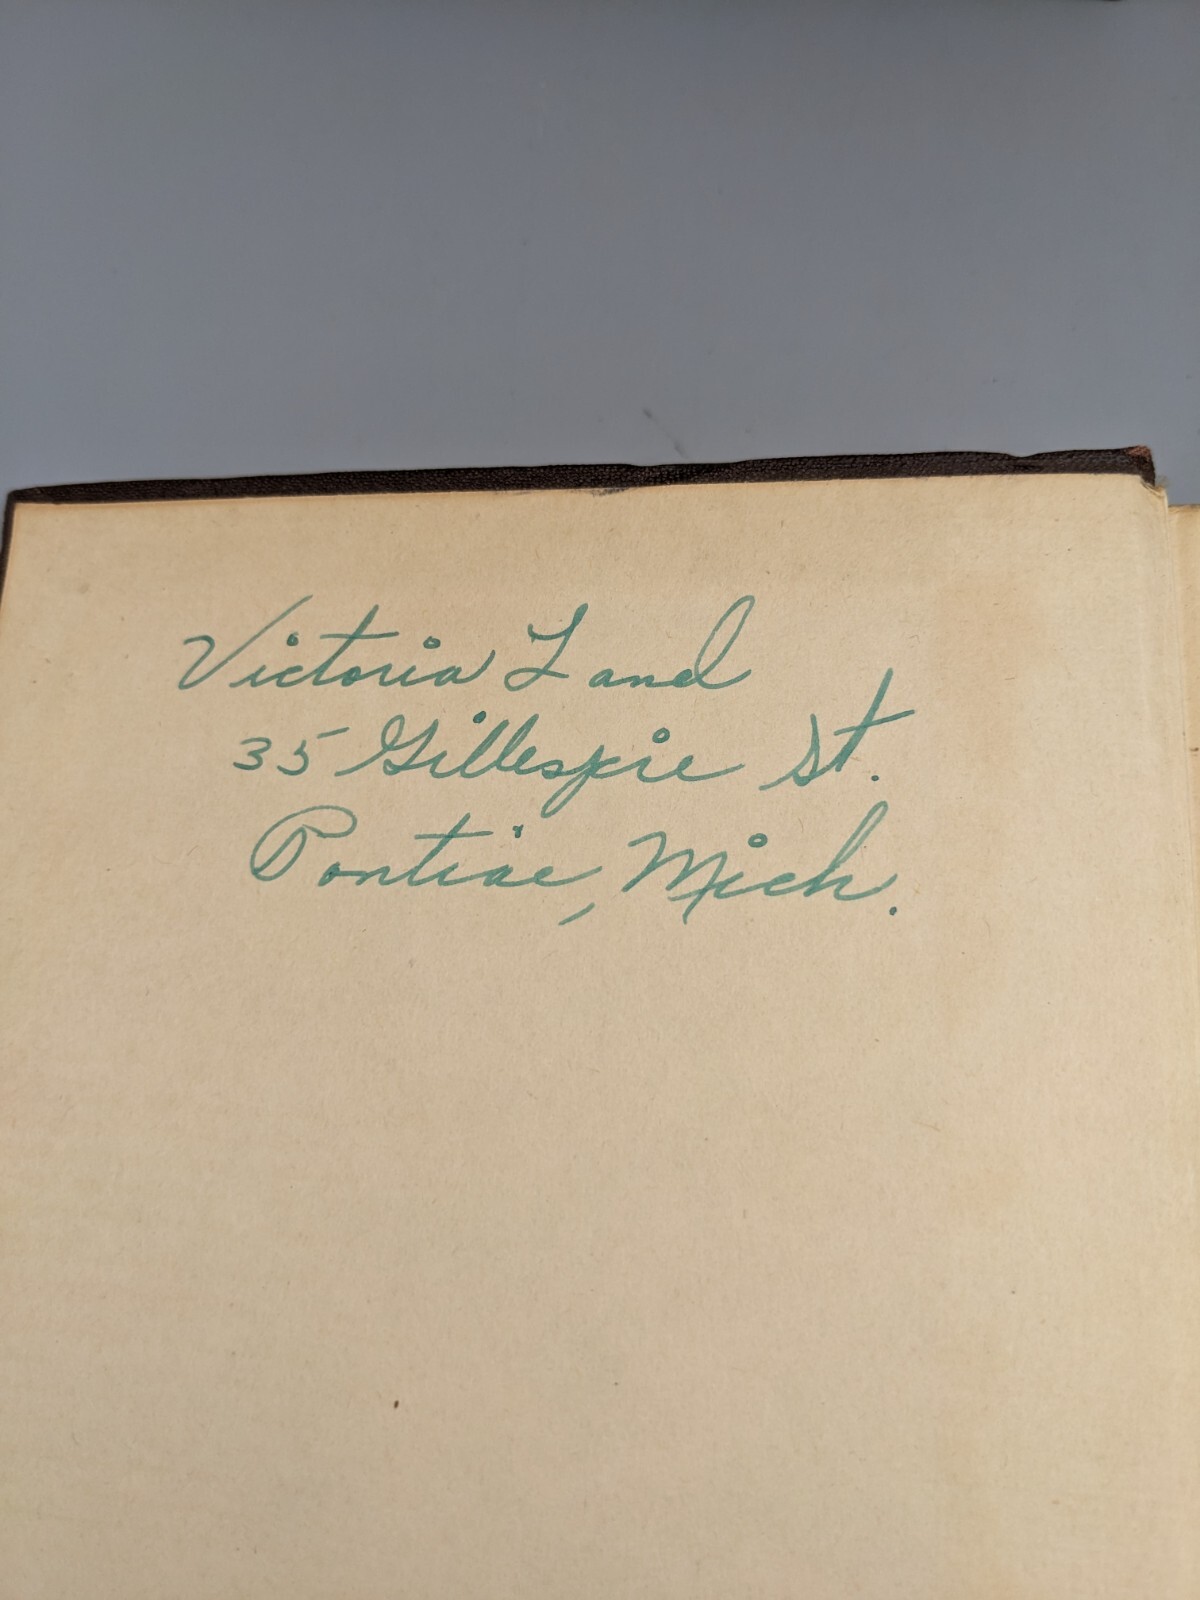 Victoria Land
35 Gillespie St.
Pontiac, Mich.